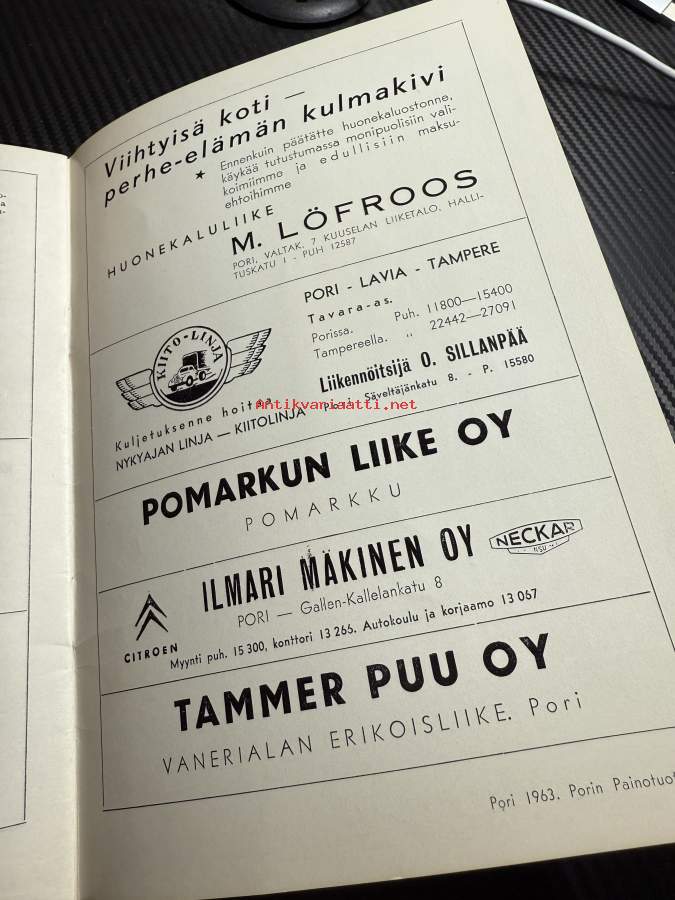 Viihtyisä koti —
perhe-elämän kulmakivi
★ Ennenkuin päätätte huonekaluostonne,
käykää tutustumassa monipuolisiin vali-
koimiimme ja edullisiin maksu-
ehtoihimme
HUONEKALULIIKE
M. LÖFROOS
PORI, VALTAK. 7 KUUSELAN LIIKETALO, HALLI-
TUSKATU 1 - PUH 12587
KIITO-LINJA
Kuljetuksenne hoitaa
NYKYAJAN LINJA — KIITOLINJA
PORI - LAVIA - TAMPERE
Tavara-as.
Porissa. Puh. 11800—15400
Tampereella. „ 22442—27091
Liikennöitsijä O. SILLANPÄÄ
Pori, Säveltäjänkatu 8. - P. 15580
antikvariaatti.net
POMARKUN LIIKE OY
POMARKKU
CITROEN
ILMARI MÄKINEN OY
NECKAR
NSU
PORI — Gallen-Kallelankatu 8
Myynti puh. 15 300, konttori 13 266. Autokoulu ja korjaamo 13 067
TAMMER PUU OY
VANERIALAN ERIKOISLIIKE. Pori
Pori 1963. Porin Painotuo